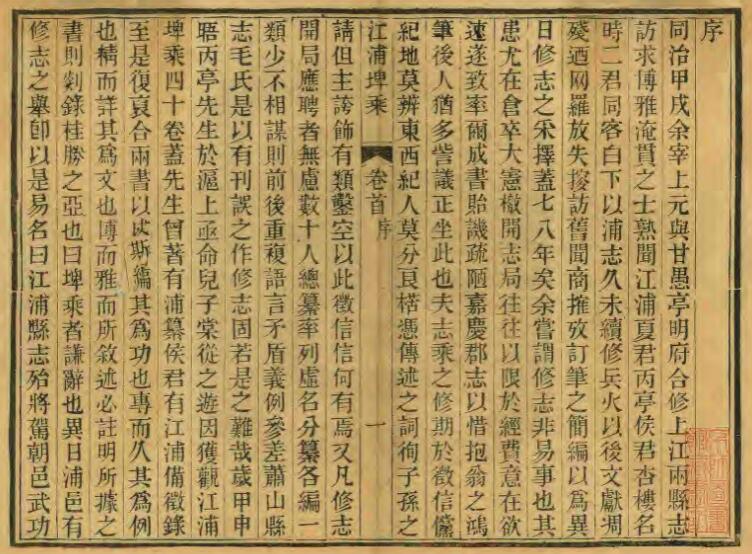 序
同治甲戌余宰上元與甘愚亭明府合修上江兩縣志
訪求博雅淹貫之士熟聞江浦夏君丙亭侯君杏樓名
時二君同客白下以浦志久未續修兵火以後文獻凋
殘迺网羅放失搜訪舊聞商搉攷訂筆之簡編以為異
日修志之宋擇蓋七八年矣余嘗謂修志非易事也其
患尤在倉卒大憲檄開志局往往以限於經費意在欲
速遂致率爾成書貽譏疏陋嘉慶郡志以惜抱翁之鴻
筆後人猶多訾議正坐此也夫志乘之修期於徵信儻
紀地莫辨東西紀人莫分良楛憑傳述之詞徇子孫之
江浦埤乘 卷首 序 一
請但主誇飾有類鑿空以此徵信信何有焉又凡修志
開局應聘者無慮數十人總纂率列虛名分纂各編一
類少不相謀則前後重複語言矛盾義例參差蕭山縣
志毛氏是以有刊誤之作修志固若是之難哉歲甲申
晤丙亭先生於滬上亟命兒子棠從之遊因獲觀江浦
埤乘四十卷蓋先生曾著有浦纂侯君有江浦備徵錄
至是復裒合兩書以成斯編其為功也專而久其為例
也精而詳其為文也博而雅而所敘述必註明所據之
書則剡錄桂勝之亞也曰埤乘者謙辭也異日浦邑有
修志之舉卽以是易名曰江浦縣志殆將駕朝邑武功